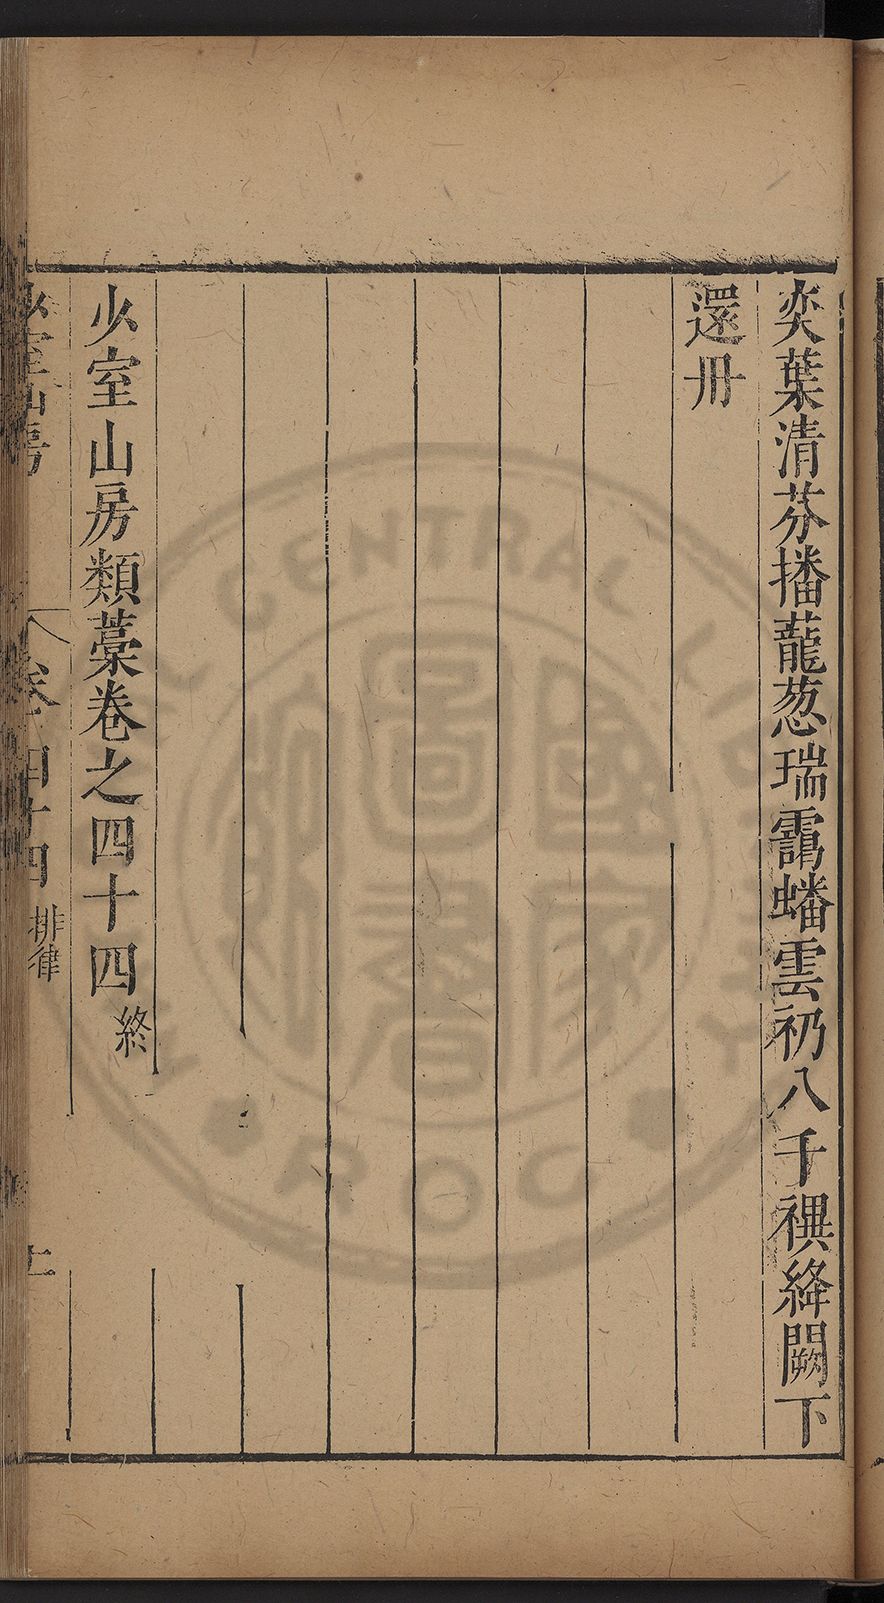 奕葉清芬播蘢葱瑞靄蟠雲礽八千禩絳闕下
還冊
少室山房類藁卷之四十四終
少室山房
卷四十四 排律
CENTRAL
ROC